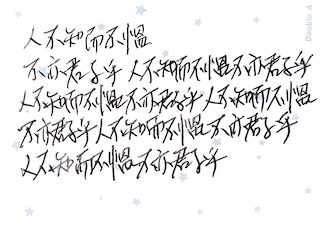 人不知而不愠
不亦君子乎 人不知而不愠不亦君子乎
人不知而不愠不亦君子乎 人不知而不愠
不亦君子乎人不知而不愠 不亦君子乎
人不知而不愠不亦君子乎
Double A